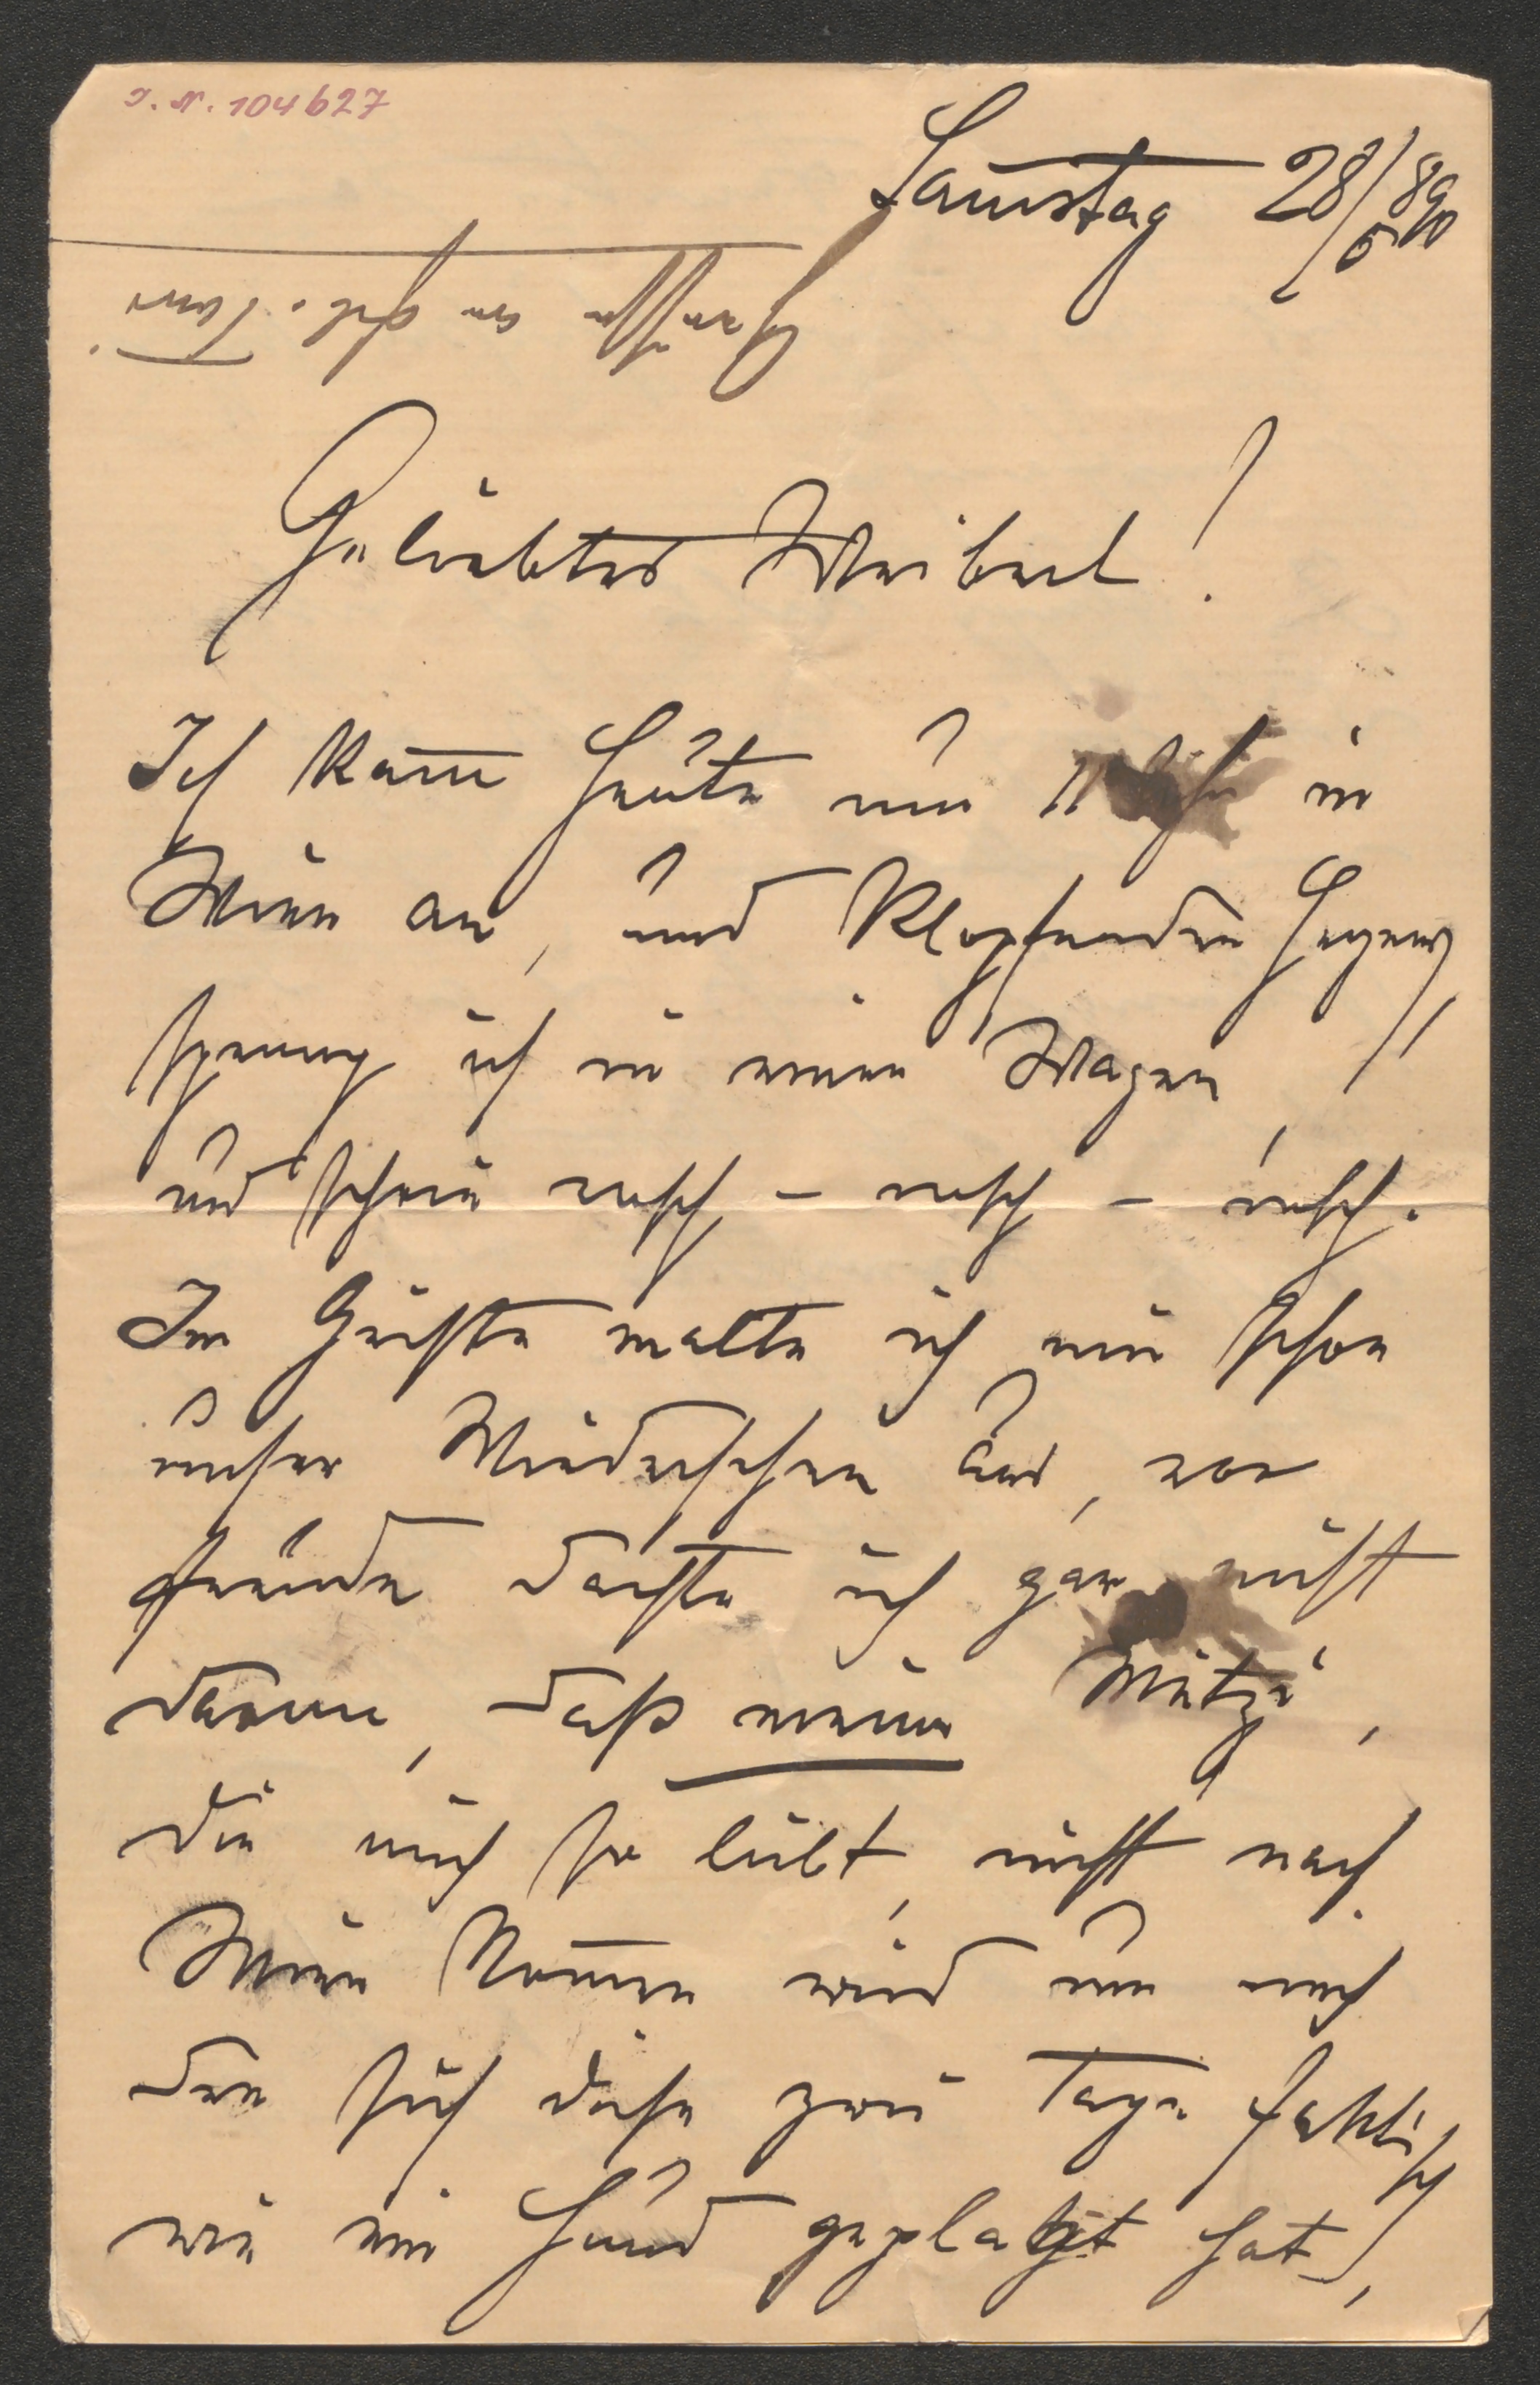 I. N. 104627
Samstag 28/5 890
Grüße an Frl. Toni
Geliebtes Weiberl!
Ich kam̄ heute um 11 Uhr in
Wien an, und klopfenden Herzens
sprang ich in einen Wagen,
und schrie rasch – rasch – rasch.
Im Geiste malte ich mir schon
unser Wiedersehen aus, vor
Freude dachte ich gar nicht
daran, daß meine Mitzi,
die mich so liebt, nicht nach
Wien kom̄en wird um mich
der sich diese zwei Tage faktisch
wie ein Hund geplagt hat,